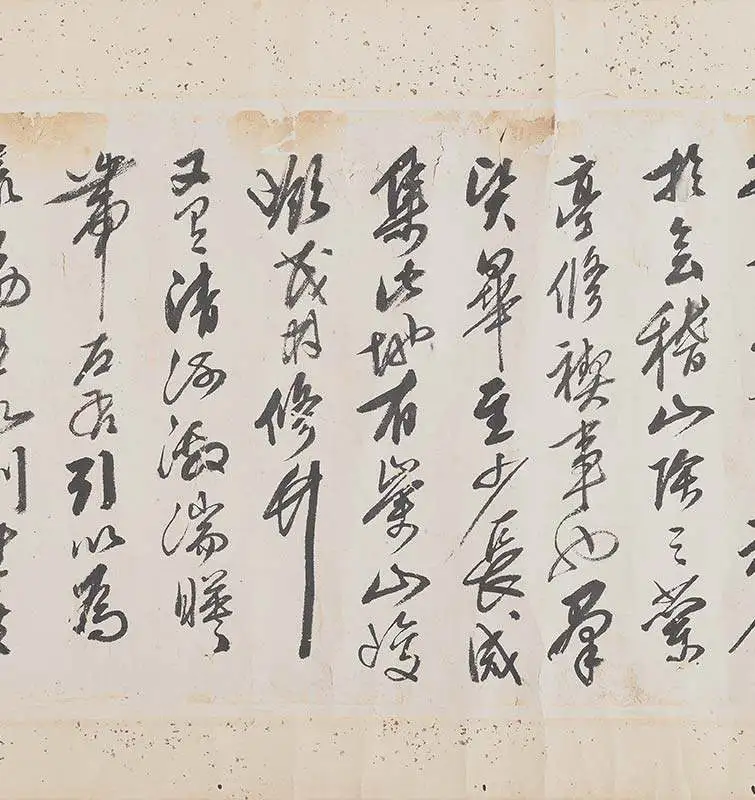 於會稽山陰之蘭
亭修禊事也羣
賢畢至少長咸
集此地有崇山峻
嶺茂林修竹
又有清流激湍暎
帶左右引以為